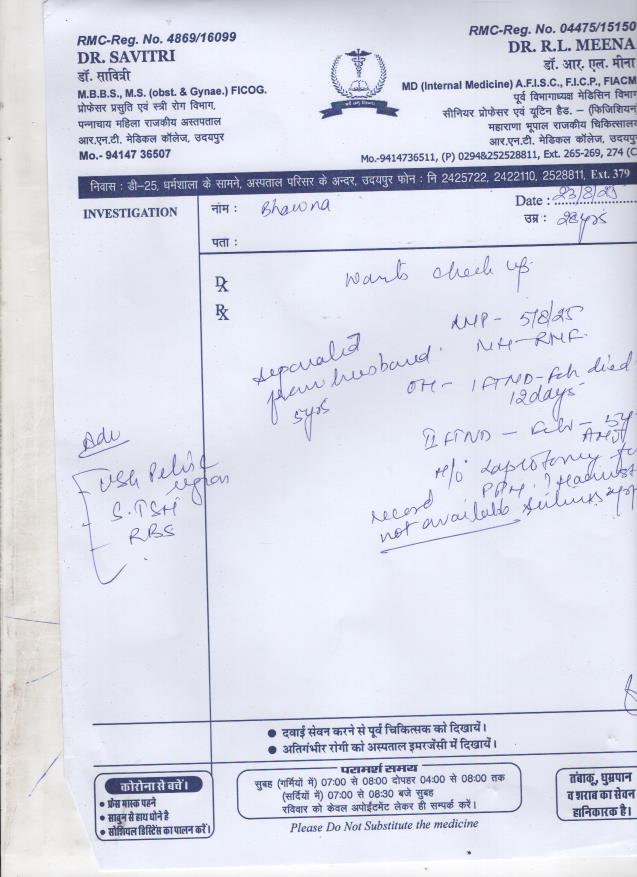 RMC-Reg. No. 4869/16099
DR. SAVITRI
डॉ. सावित्री
M.B.B.S., M.S. (obst. & Gynae.) FICOG.
प्रोफेसर प्रसुति एवं स्त्री रोग विभाग,
पन्नाचाय महिला राजकीय अस्तपताल
आर.एन.टी. मेडिकल कॉलेज, उदयपुर
Mo.- 94147 36507
RMC-Reg. No. 04475/15150
DR. R.L. MEENA
डॉ. आर. एल. मीना
MD (Internal Medicine) A.F.I.S.C., F.I.C.P., FIACM
पूर्व विभागाध्यक्ष मेडिसिन विभाग
सीनियर प्रोफेसर एवं यूटिन हैड. – (फिजिशियन
महाराणा भूपाल राजकीय चिकित्साल
आर.एन.टी. मेडिकल कॉलेज, उदयपुर
Mo.-9414736511, (P) 0294&252528811, Ext. 265-269, 274 (C
निवास : डी-25, धर्मशाला के सामने, अस्पताल परिसर के अन्दर, उदयपुर फोन : नि 2425722, 2422110, 2528811, Ext. 379
INVESTIGATION
नाम : Bhawna
Date : 23/8/25
उम्र : 28yrs
पता :
Rx wants check up
Rx
LMP - 5/8/25
separated
from husband.
5yrs
MH - RNF
OH - I FTND - Fch died
12days
II FTND - Fch - 5y
H/o Laprotomy
PPH
record
not available
Adv
USG Pelvic
region
S.TSH
RBS
● दवाई सेवन करने से पूर्व चिकित्सक को दिखायें।
● अतिगंभीर रोगी को अस्पताल इमरजेंसी में दिखायें।
कोरोना से बचें।
● फ्रेस मास्क पहने
● साबुन से हाथ धोने है
● सोशियल डिस्टिंस का पालन करें।
परामर्श समय
सुबह (गर्मियों में) 07:00 से 08:00 दोपहर 04:00 से 08:00 तक
(सर्दियों में) 07:00 से 08:30 बजे सुबह
रविवार को केवल अपोईंटमेंट लेकर ही सम्पर्क करें।
Please Do Not Substitute the medicine
तंबाकू, धुम्रपान
व शराब का सेवन
हानिकारक है।